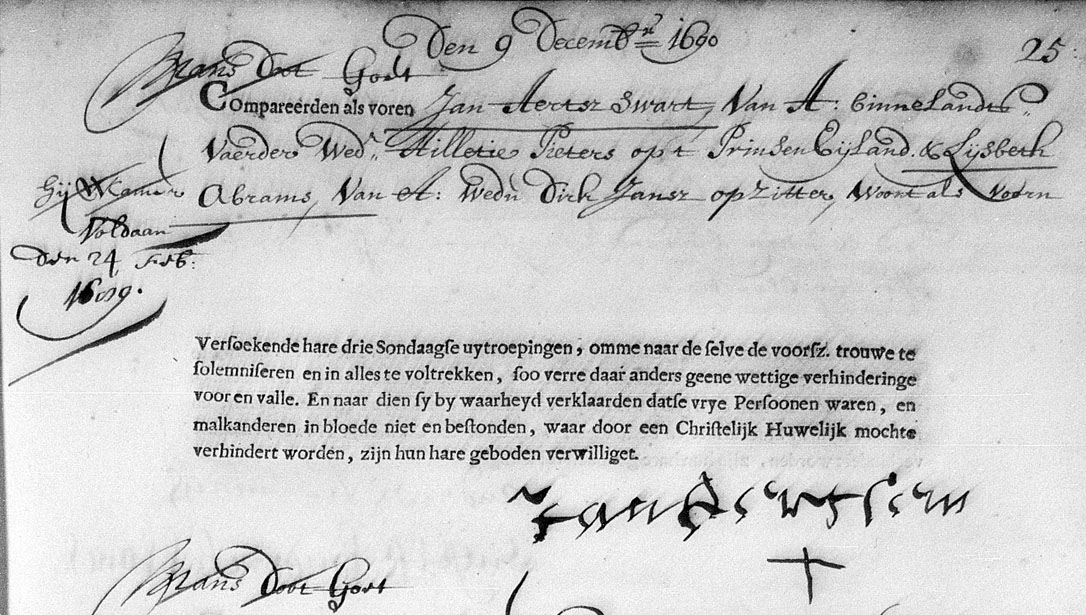 Den 9 Decemb.r 1690
25
Compareerden als voren Jan Aertsz Swart, Van A: binneLandts
Vaerder Wed.r Hilletie Pieters op t Prinsen Eijland. & Lijsbeth
Abrams, Van A: Wed:n Dirk Jansz op Zitter, Woont als Voorn
WKamer
Voldaan
Den 24 Feb:
1689.
Versoekende hare drie Sondaagse uytroepingen, omme naar de selve de voorsz. trouwe te
solemniseren en in alles te voltrekken, soo verre daar anders geene wettige verhinderinge
voor en valle. En naar dien sy by waarheyd verklaarden datse vrye Persoonen waren, en
malkanderen in bloede niet en bestonden, waar door een Christelijk Huwelijk mochte
verhindert worden, zijn hun hare geboden verwilliget.